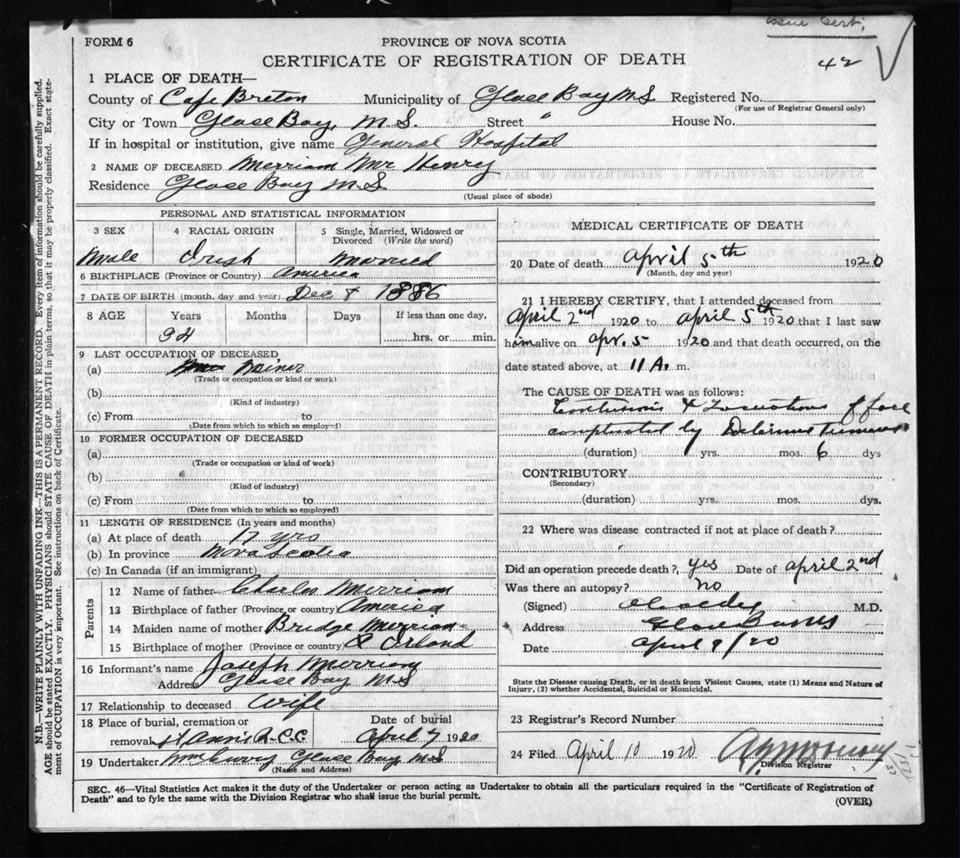 FORM 6
PROVINCE OF NOVA SCOTIA
CERTIFICATE OF REGISTRATION OF DEATH
42
1 PLACE OF DEATH—
County of Cape Breton Municipality of Glace Bay N.S. Registered No.
(For use of Registrar General only)
City or Town Glace Bay, N.S. Street " House No.
If in hospital or institution, give name General Hospital
2 NAME OF DECEASED Merriam Mr Henry
Residence Glace Bay N.S
(Usual place of abode)
PERSONAL AND STATISTICAL INFORMATION
3 SEX 4 RACIAL ORIGIN 5 Single, Married, Widowed or Divorced (Write the word)
Male Irish Married
6 BIRTHPLACE (Province or Country) America
7 DATE OF BIRTH (month, day and year) Dec 1886
8 AGE Years Months Days If less than one day,
34 hrs. or min.
9 LAST OCCUPATION OF DECEASED
(a) Miner
(Trade or occupation or kind or work)
(b)
(Kind of industry)
(c) From to
(Date from which to which so employed)
10 FORMER OCCUPATION OF DECEASED
(a)
(Trade or occupation or kind of work)
(b)
(Kind of industry)
(c) From to
(Date from which to which so employed)
11 LENGTH OF RESIDENCE (In years and months)
(a) At place of death 17 yrs
(b) In province Nova Scotia
(c) In Canada (if an immigrant)
Parents
12 Name of father Charles Merriam
13 Birthplace of father (Province or country) America
14 Maiden name of mother Bridge Merriam
15 Birthplace of mother (Province or country)
16 Informant's name Joseph Merriam
Address Glace Bay N.S
17 Relationship to deceased Wife
18 Place of burial, cremation or removal St Anns R.C.C. Date of burial April 7 1920
19 Undertaker Glace Bay N.S
(Name and Address)
MEDICAL CERTIFICATE OF DEATH
20 Date of death April 5th 1920
(Month, day and year)
21 I HEREBY CERTIFY, that I attended deceased from
April 2nd 1920 to April 5th 1920 that I last saw
him alive on Apr. 5 1920 and that death occurred, on the
date stated above, at 11 A. m.
The CAUSE OF DEATH was as follows:
Contusions & Lacerations of face
complicated by Delirium Tremens
(duration) yrs. mos. 6 dys
CONTRIBUTORY
(Secondary)
(duration) yrs. mos. dys.
22 Where was disease contracted if not at place of death?
Did an operation precede death? yes Date of April 2nd
Was there an autopsy? no
(Signed) M.D.
Address Glace Bay NS
Date April 9/20
State the Disease causing Death, or in death from Violent Causes, state (1) Means and Nature of
Injury, (2) whether Accidental, Suicidal or Homicidal.
23 Registrar's Record Number
24 Filed April 10 1920
Division Registrar
SEC. 46—Vital Statistics Act makes it the duty of the Undertaker or person acting as Undertaker to obtain all the particulars required in the "Certificate of Registration of
Death" and to fyle the same with the Division Registrar who shall issue the burial permit.
(OVER)
N.B.—WRITE PLAINLY WITH UNFADING INK—THIS IS A PERMANENT RECORD. Every item of information should be carefully supplied.
AGE should be stated EXACTLY. PHYSICIANS should STATE CAUSE OF DEATH in plain terms, so that it may be properly classified. Exact state-
ment of OCCUPATION is very important. See instructions on back of Certificate.